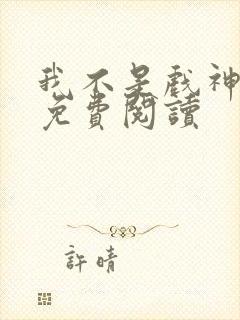 我不是戲神
免費閱讀
許晴